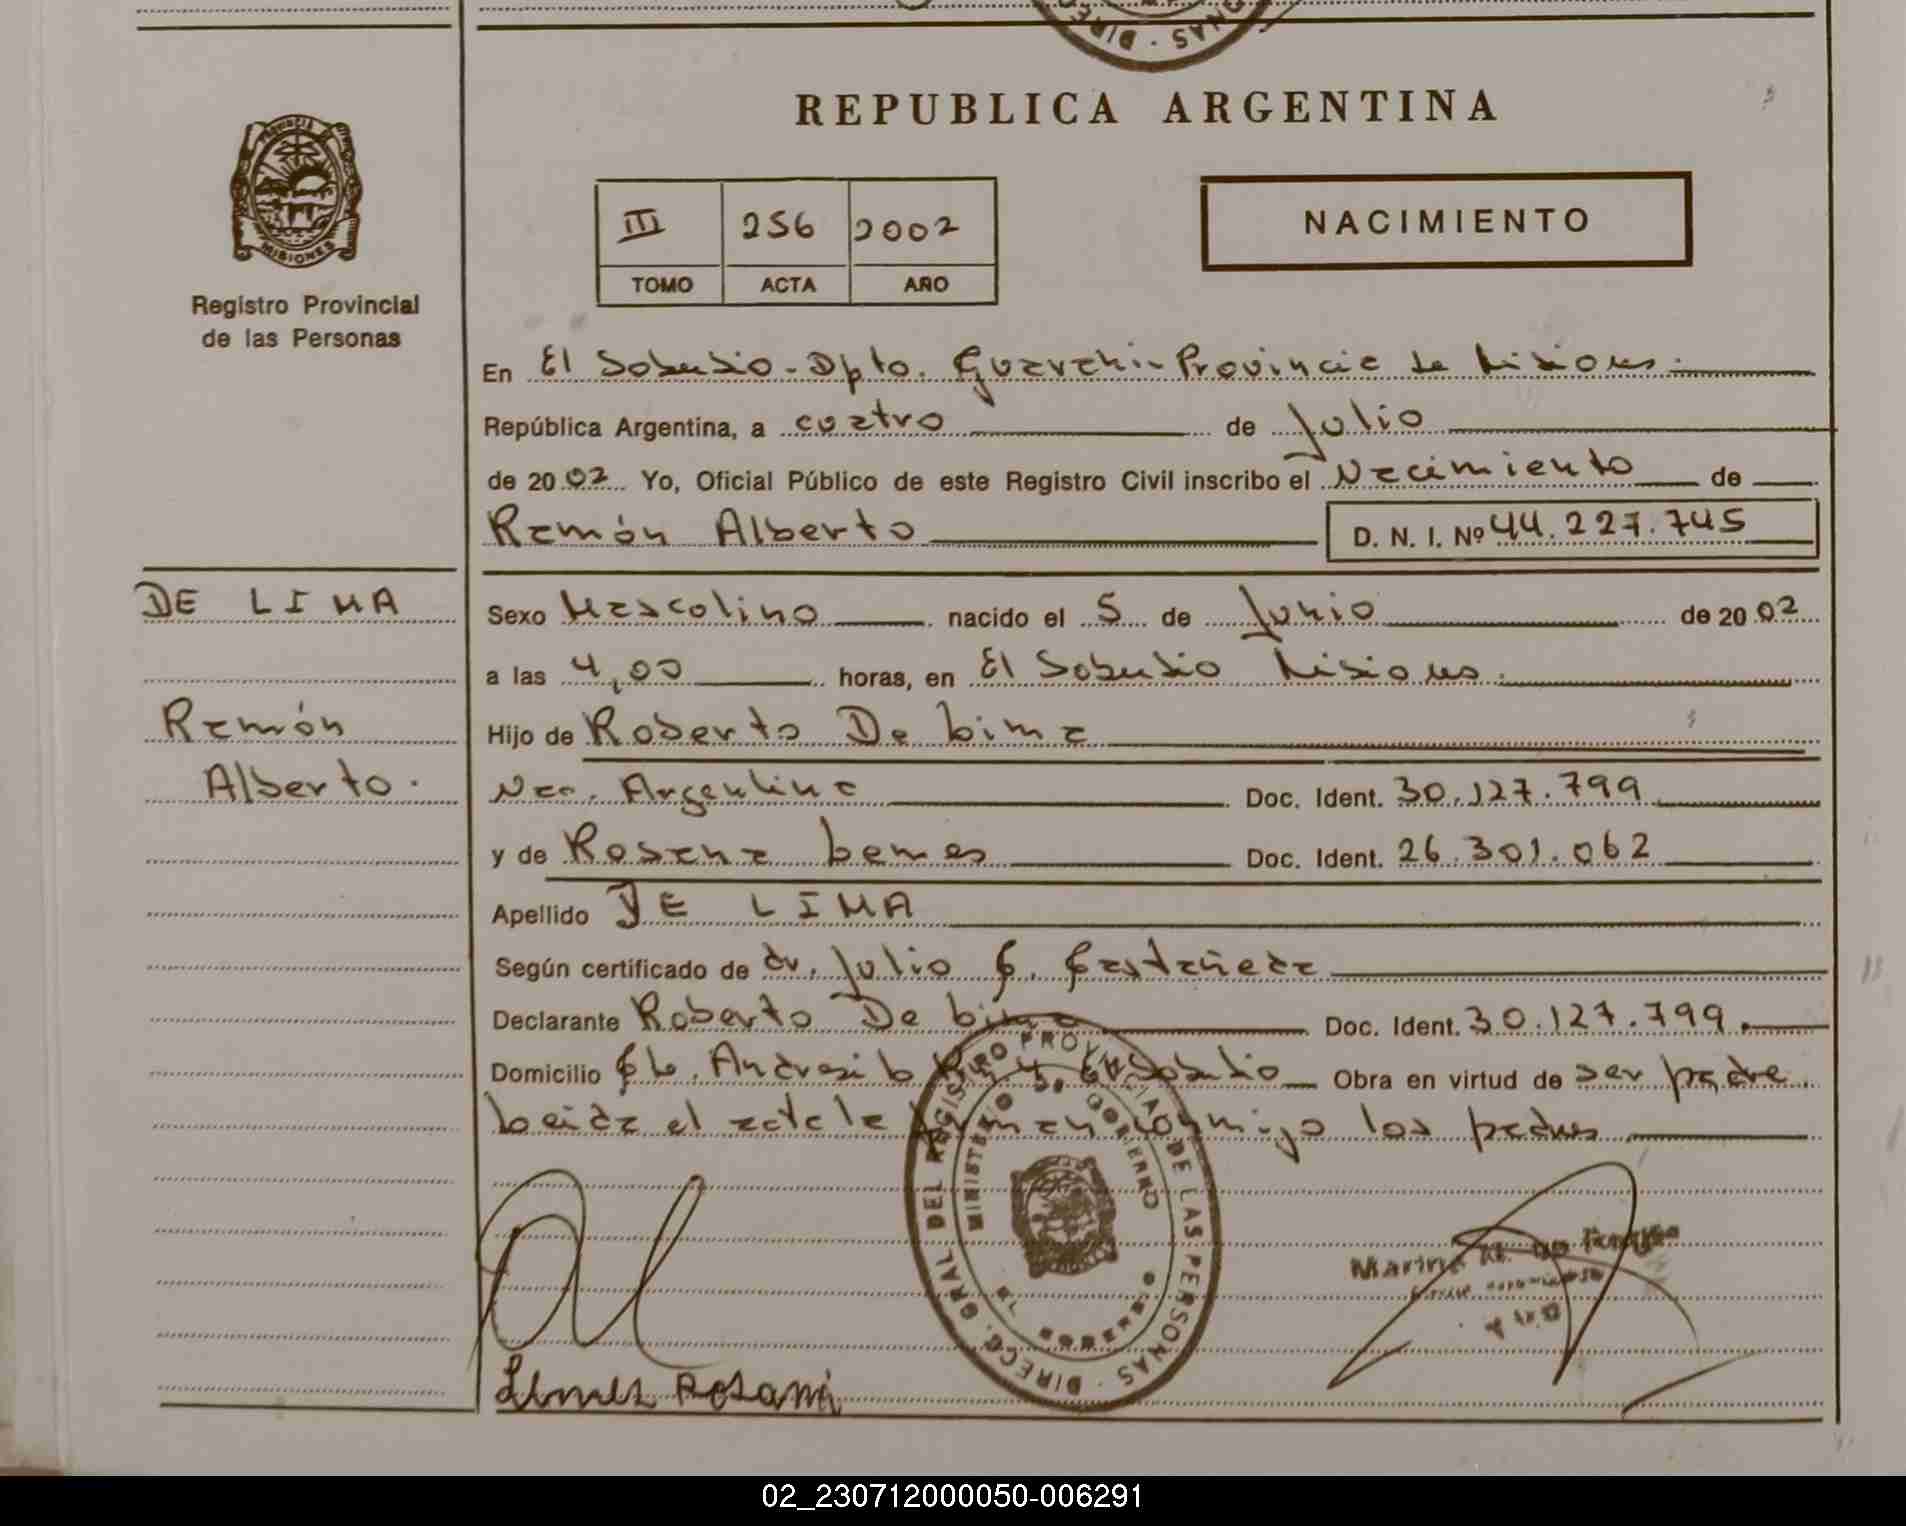 REPUBLICA ARGENTINA
PROVINCIA DE MISIONES
Registro Provincial
de las Personas
III 256 2002
TOMO ACTA AÑO
NACIMIENTO
En El Soberbio - Dpto. Guarani - Provincia de Misiones.
República Argentina, a cuatro de Julio
de 2002 Yo, Oficial Público de este Registro Civil inscribo el Nacimiento de
Ramón Alberto D. N. I. Nº 44.227.745
DE LIMA
Ramón
Alberto.
Sexo Masculino nacido el 5 de Junio de 2002
a las 4,00 horas, en El Soberbio Misiones.
Hijo de Roberto De Lima
Nac. Argentina Doc. Ident. 30.127.799
y de Rosana Lemes Doc. Ident. 26.301.062
Apellido DE LIMA
Según certificado de dr. Julio C. Castañeda
Declarante Roberto De Lima Doc. Ident. 30.127.799.
Domicilio Soberbio Obra en virtud de ser padre.
Leida el acta la firman conmigo los padres
DIREC. GRAL DEL REGISTRO PROVINCIAL DE LAS PERSONAS
MINISTERIO DE GOBIERNO
EL SOBERBIO
Marina
02_230712000050-006291